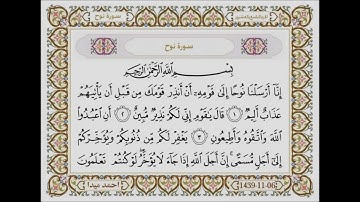 سورة نوح
سورة نوح
بِسْمِ ٱللَّهِ ٱلرَّحْمَٰنِ ٱلرَّحِيمِ
إِنَّآ أَرْسَلْنَا نُوحًا إِلَىٰ قَوْمِهِۦٓ أَنْ أَنذِرْ قَوْمَكَ مِن قَبْلِ أَن يَأْتِيَهُمْ
عَذَابٌ أَلِيمٌ ١ قَالَ يَٰقَوْمِ إِنِّى لَكُمْ نَذِيرٌ مُّبِينٌ ٢ أَنِ ٱعْبُدُوا۟
ٱللَّهَ وَٱتَّقُوهُ وَأَطِيعُونِ ٣ يَغْفِرْ لَكُم مِّن ذُنُوبِكُمْ وَيُؤَخِّرْكُمْ
إِلَىٰٓ أَجَلٍ مُّسَمًّى إِنَّ أَجَلَ ٱللَّهِ إِذَا جَآءَ لَا يُؤَخَّرُ لَوْ كُنتُمْ تَعْلَمُونَ
احمد ميدا
1439-11-06